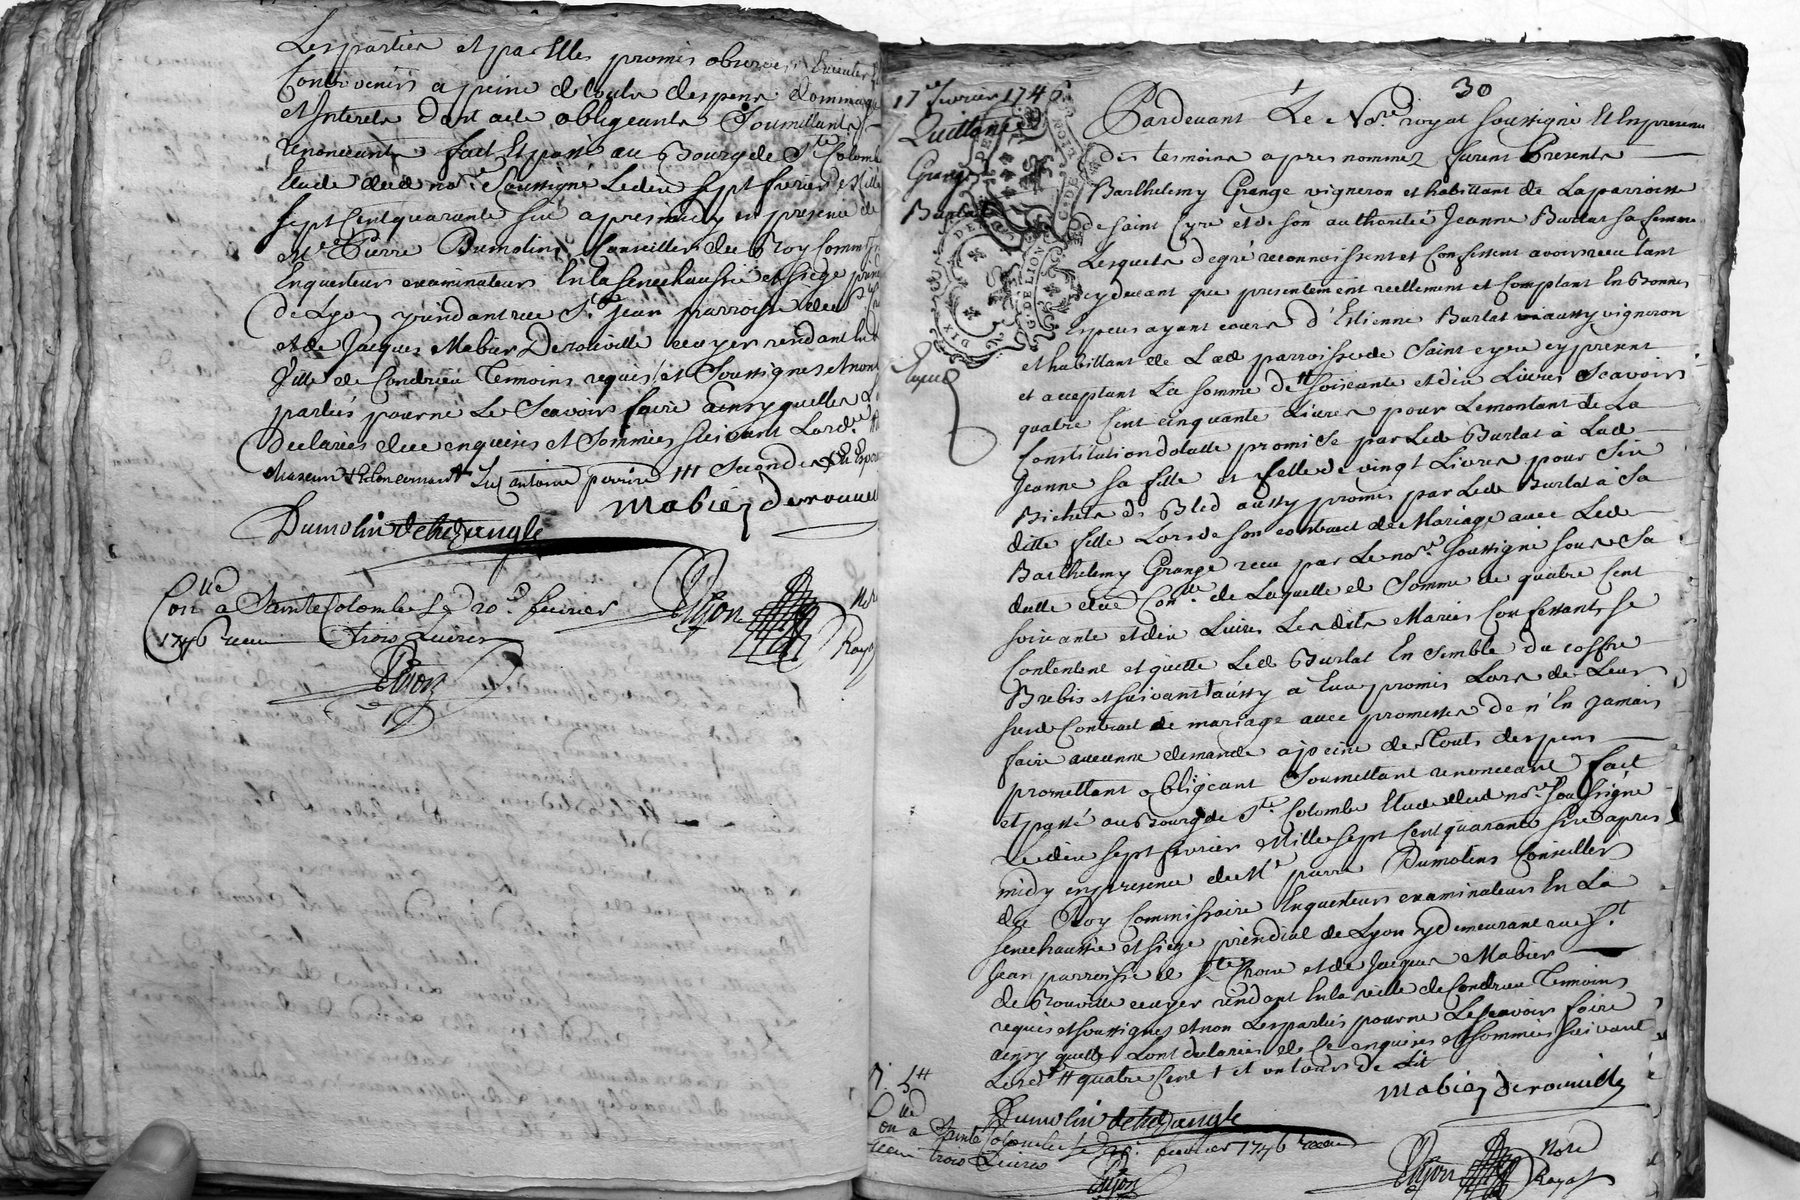 Les parties et par Elles promis observer Executer
Contrevenir a peine de touts despens dommages
et Interets dont acte obligeants Soumettants
renonceants fait Et passé au Bourg de Ste Colombe
Etude dud nore Soussigné Ledix Sept fevrier Mille
Sept Cent quarante six apres midy en presence de
Mr Pierre Dumolin Conseiller du Roy Commis
Enqueteur examinateur En la Senechaussée et Siege
de Lyon y rue St Jean parroisse
et de Jacques Mabiez Derouville ecuyer residant En la
Ville de Condrieu Temoins requis et Soussignes et non
parties pour ne Le Scavoir faire ainsy quelles
declarées de ce enquises et Sommées Suivant Lorde
antoine perrier
mabiez derouville
Dumolin
Conllé a Sainte Colombe Le 20e fevrier
1746 receu trois Livres
30
17e fevrier 1746
Quittance
Grange
Burlat
DIX DEN
G. DE LION
Pardevant Le Nore royal soussigné Et En presence
des temoins apres nommez furent Presents
Barthelemy Grange vigneron et habittant de La parroisse
de Saint Cyre et de son authorité Jeanne Burlat sa femme
Lesquels de gré reconnoissent et Confessent avoir receu tant
cy devant que presentement reellement et Comptant En Bonnes
Especes ayant cours d'Estienne Burlat aussy vigneron
et habittant de Lad parroisse de Saint cyre cy present
et acceptant La Somme de Soixante et dix Livres Scavoir
quatre Cent cinquante Livres pour Le montant de La
Constitution dotalle promise par Led Burlat à Lad
Jeanne Sa fille et Celle de vingt Livres pour Six
Bichets de Bled aussy promis par Led Burlat à Sa
ditte fille Lors de son contract de Mariage avec Led
Barthelemy Grange receu par Le nore Soussigné sous Sa
datte due Conllé de Laquelle de Somme de quatre Cent
soixante et dix Livres Lesdits Maries Confessants se
Contentent et quitte Led Burlat En semble du coffre
Brebis et suivant aussy à Eux promis Lors de Leur
susd Contract de mariage avec promesses de n'En Jamais
faire aucunne demande a peine de Touts despens
promettant obligeant Soumettant renonceant fait
et passé au Bourg de Ste Colombe Etude dud nore Soussigné
Ledix Sept fevrier Mille Sept Cent quarante Six apres
midy en presence de Mr pierre Dumolins Conseiller
du Roy Commissaire Enquesteur examinateur En La
Senechaussée et Siege presidial de Lyon y demeurant rue St
Jean parroisse de Ste Croix et de Jacques Mabiez
de Rouville ecuyer residant En la ville de Condrieu Temoins
requis et Soussignes et non Les parties pour ne Le scavoir faire
ainsy quelles Lont declarées de ce enquises et Sommées suivant
Lorde quatre Cent
mabiez derouville
Dumolin
Conllé a Sainte Colombe Le 20e fevrier 1746 receu
trois Livres